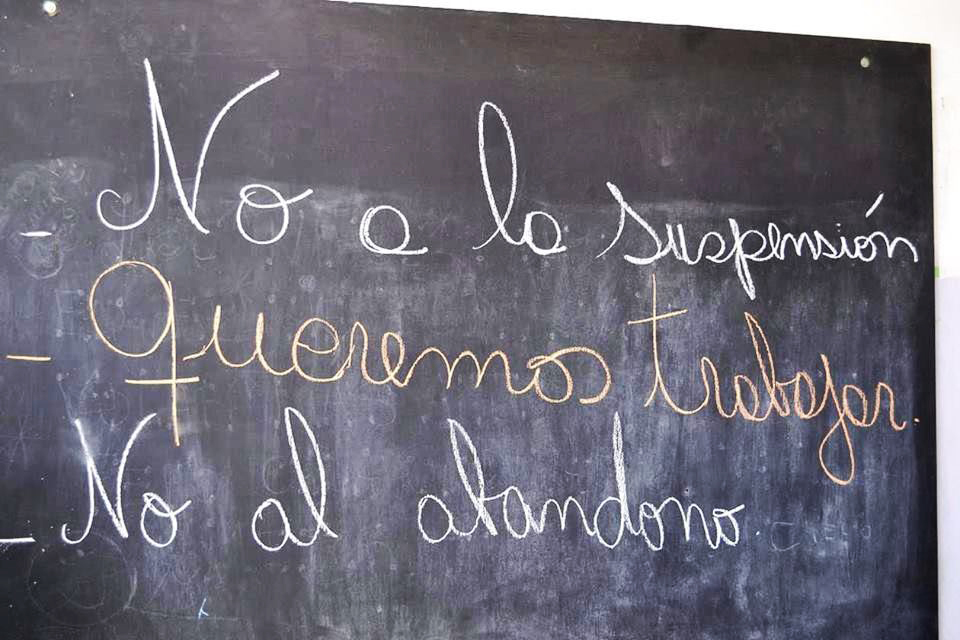 - No a la suspensión
- Queremos trabajar.
- No al abandono.